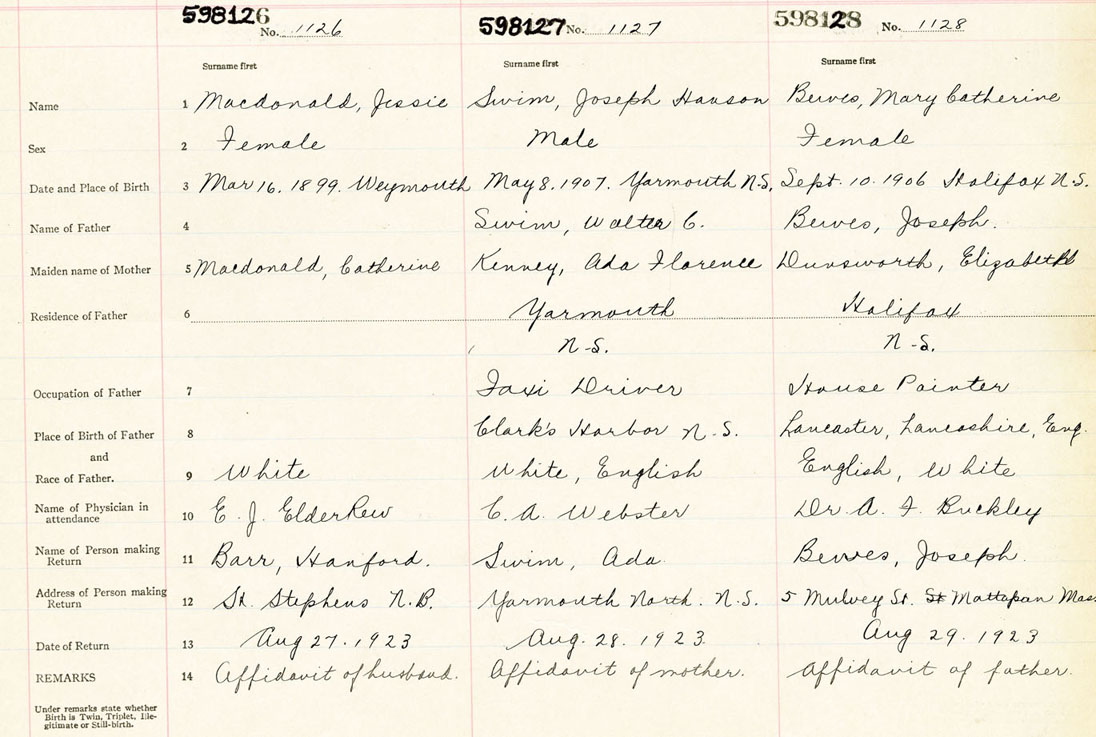 598126 No. 1126 598127 No. 1127 598128 No. 1128
Surname first Surname first Surname first
Name 1 Macdonald, Jessie Swim, Joseph Hanson Bewes, Mary Catherine
Sex 2 Female Male Female
Date and Place of Birth 3 Mar 16. 1899. Weymouth May 8. 1907. Yarmouth N.S. Sept. 10. 1906 Halifax N.S.
Name of Father 4 Swim, Walter C. Bewes, Joseph.
Maiden name of Mother 5 Macdonald, Catherine Kenney, Ada Florence Dunsworth, Elizabeth
Residence of Father 6 Yarmouth Halifax
N.S. N.S.
Occupation of Father 7 Taxi Driver House Painter
Place of Birth of Father 8 Clark's Harbor N.S. Lancaster, Lancashire, Eng.
and
Race of Father. 9 White White, English English, White
Name of Physician in
attendance 10 E. J. Elderkew C. A. Webster Dr. A. F. Buckley
Name of Person making
Return 11 Barr, Hanford. Swim, Ada. Bewes, Joseph.
Address of Person making
Return 12 St. Stephens N.B. Yarmouth North. N.S. 5 Mulvey St. St Mattapan Mass
Date of Return 13 Aug 27. 1923 Aug. 28. 1923. Aug 29. 1923
REMARKS 14 Affidavit of husband. Affidavit of mother. Affidavit of father.
Under remarks state whether
Birth is Twin, Triplet, Ille-
gitimate or Still-birth.